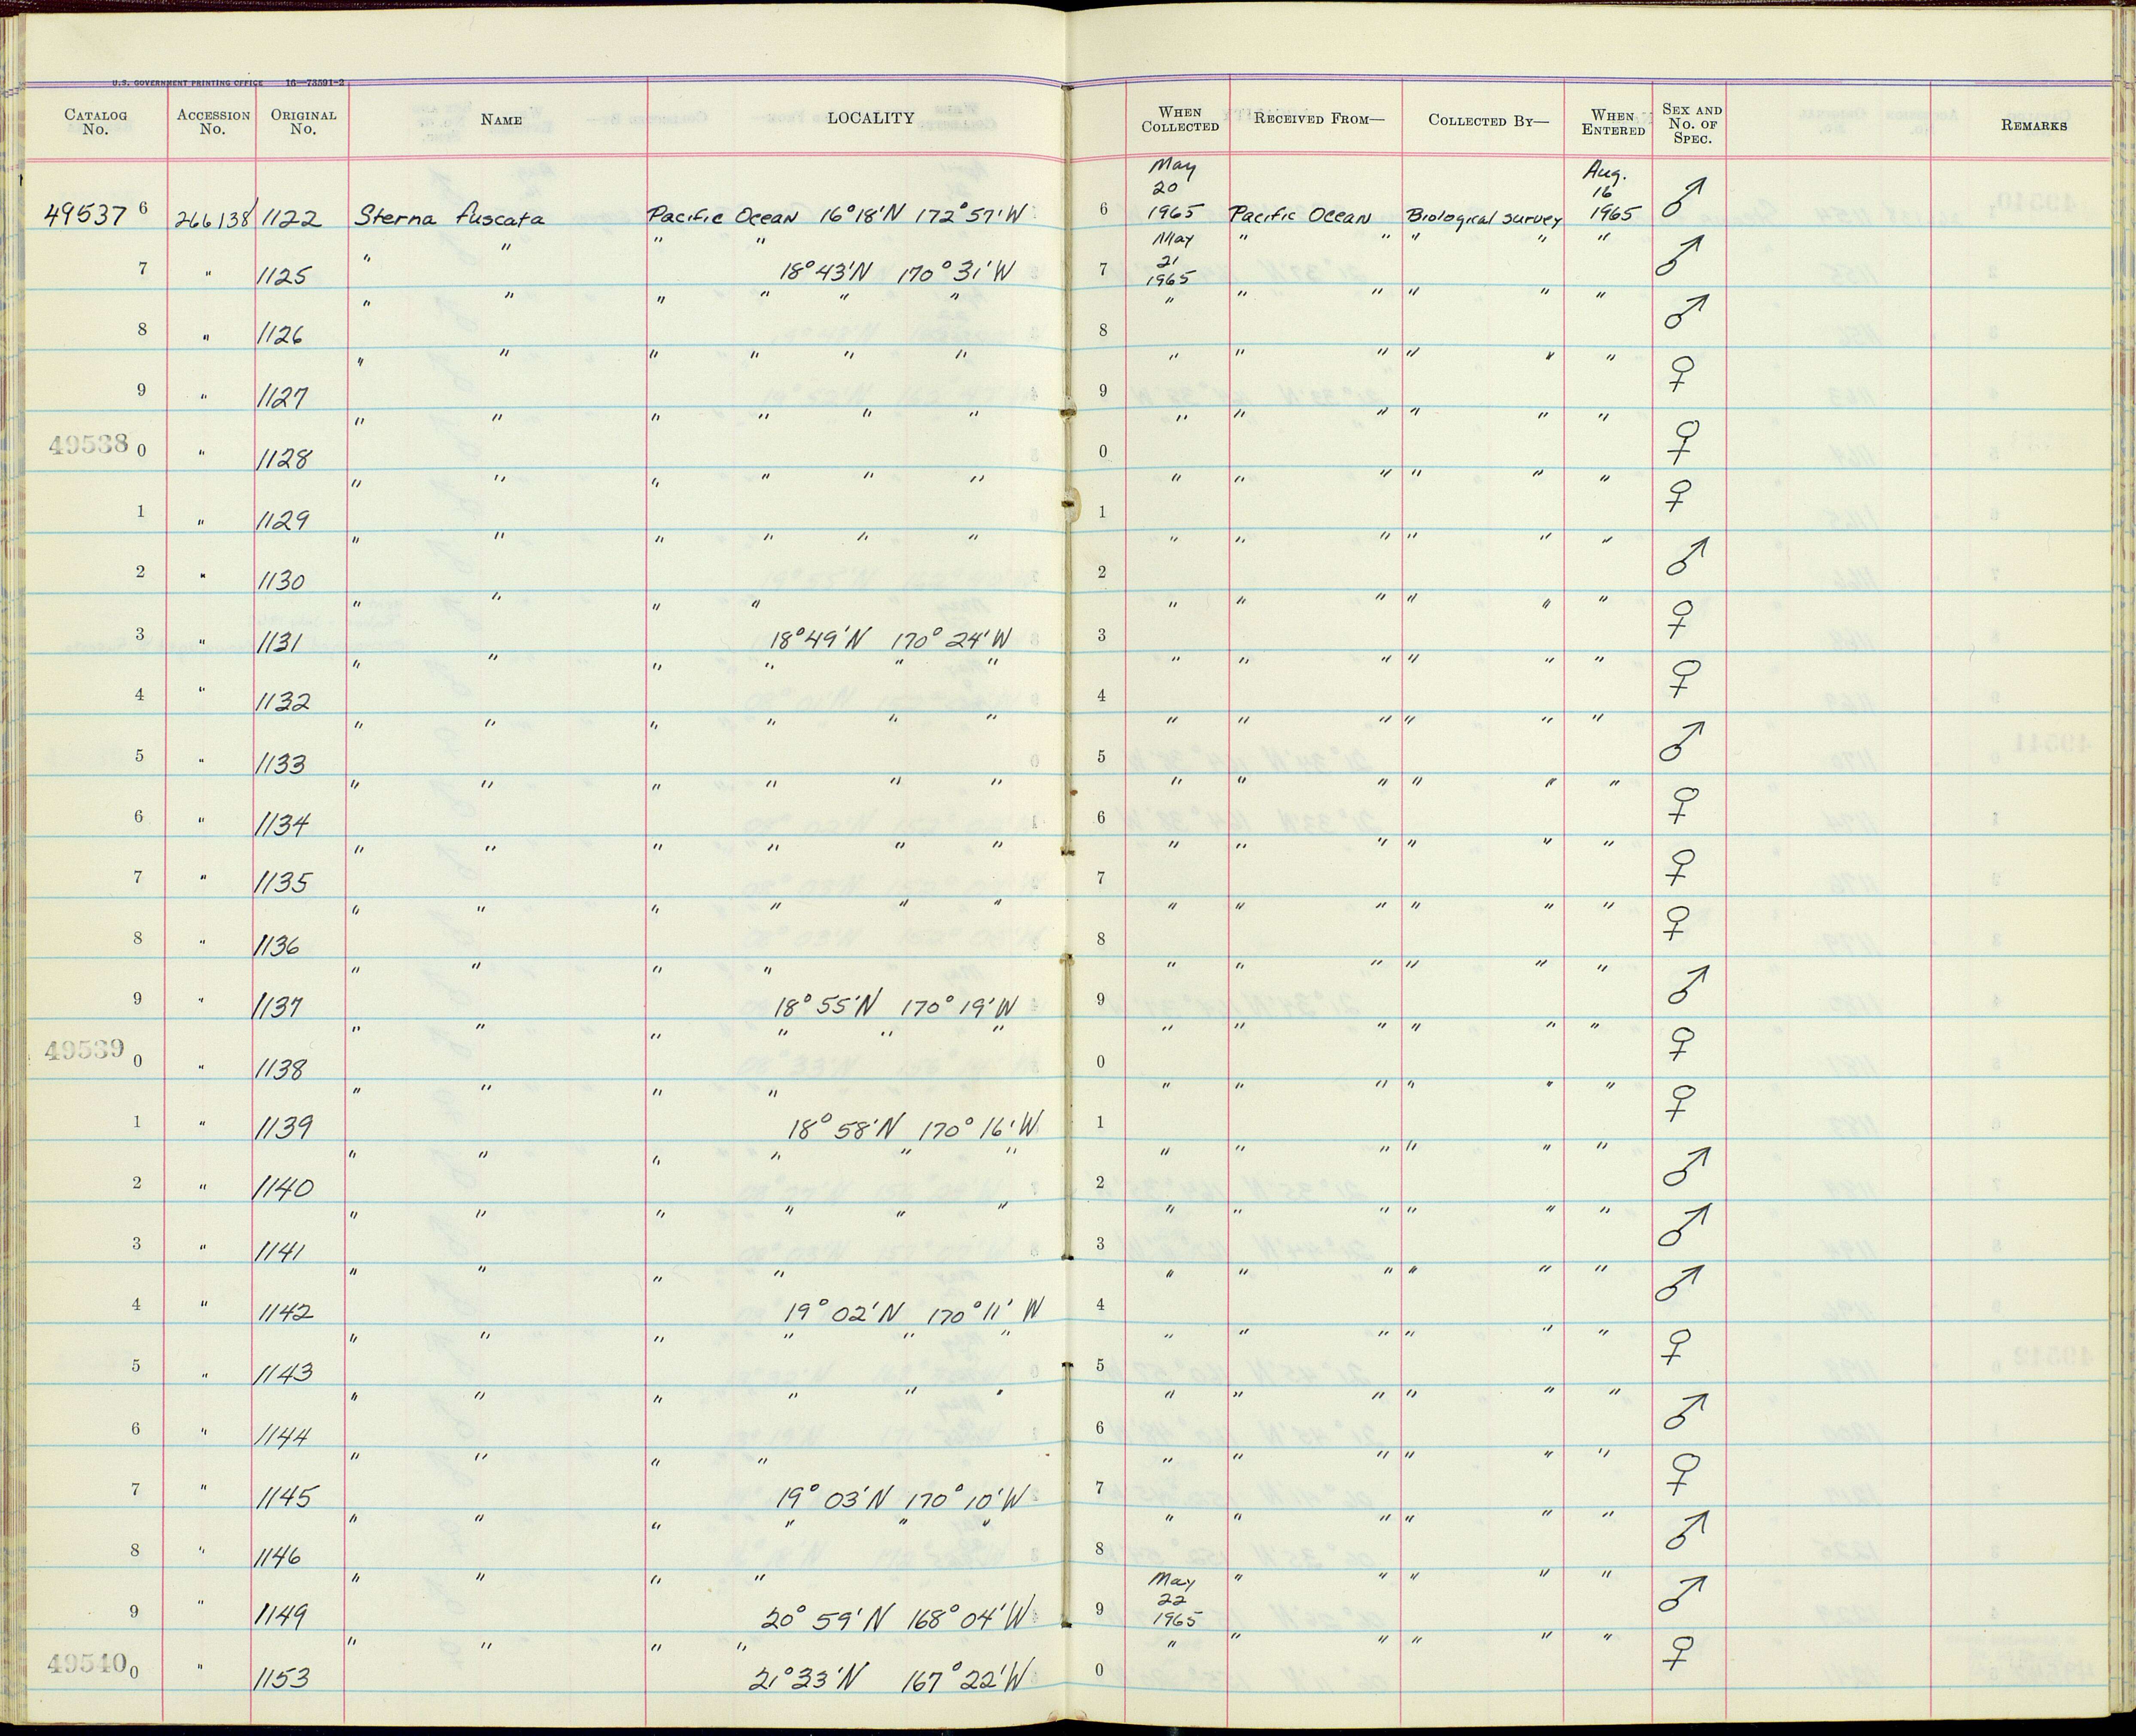 U.S. GOVERNMENT PRINTING OFFICE 16—73591-2
CATALOG No. ACCESSION No. ORIGINAL No. NAME LOCALITY WHEN COLLECTED RECEIVED FROM— COLLECTED BY— WHEN ENTERED SEX AND No. OF SPEC. REMARKS
49537 6 266138 1122 Sterna fuscata Pacific Ocean 16°18'N 172°57'W 6 May 20 1965 Pacific Ocean Biological survey Aug. 16 1965 ♂
7 " 1125 " " " " 18°43'N 170°31'W 7 May 21 1965 " " " " " ♂
8 " 1126 " " " " " " 8 " " " " " " ♂
9 " 1127 " " " " " " 9 " " " " " " ♀
49538 0 " 1128 " " " " " " 0 " " " " " " ♀
1 " 1129 " " " " " " 1 " " " " " " ♀
2 " 1130 " " " " " " 2 " " " " " " ♂
3 " 1131 " " " " 18°49'N 170°24'W 3 " " " " " " ♀
4 " 1132 " " " " " " 4 " " " " " " ♀
5 " 1133 " " " " " " 5 " " " " " " ♂
6 " 1134 " " " " " " 6 " " " " " " ♀
7 " 1135 " " " " " " 7 " " " " " " ♀
8 " 1136 " " " " " " 8 " " " " " " ♀
9 " 1137 " " " " 18°55'N 170°19'W 9 " " " " " " ♂
49539 0 " 1138 " " " " " " 0 " " " " " " ♀
1 " 1139 " " " " 18°58'N 170°16'W 1 " " " " " " ♀
2 " 1140 " " " " " " 2 " " " " " " ♂
3 " 1141 " " " " " " 3 " " " " " " ♂
4 " 1142 " " " " 19°02'N 170°11'W 4 " " " " " " ♂
5 " 1143 " " " " " " 5 " " " " " " ♀
6 " 1144 " " " " " " 6 " " " " " " ♂
7 " 1145 " " " " 19°03'N 170°10'W 7 " " " " " " ♀
8 " 1146 " " " " " " 8 " " " " " " ♂
9 " 1149 " " " " 20°59'N 168°04'W 9 May 22 1965 " " " " " ♂
49540 0 " 1153 " " " " 21°33'N 167°22'W 0 " " " " " " ♀